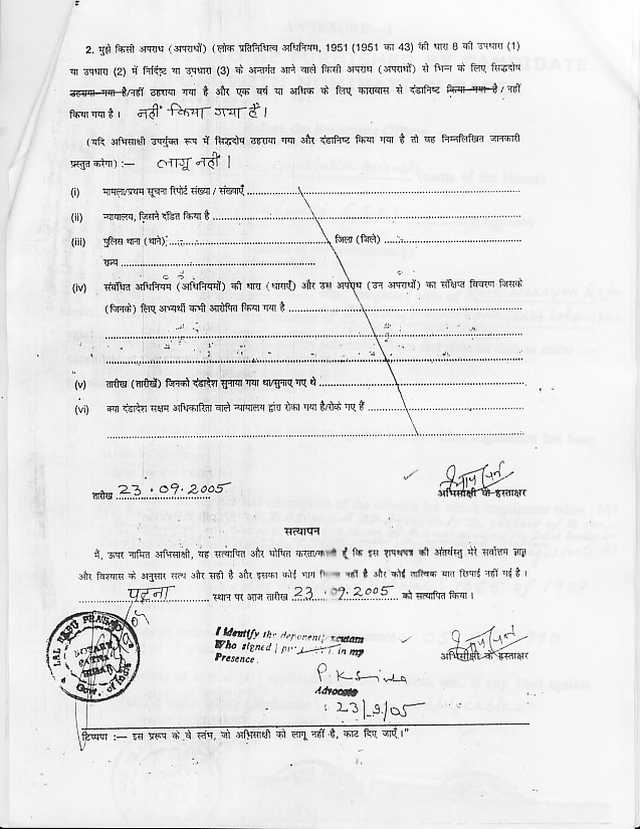 2. मुझे किसी अपराध (अपराधों) (लोक प्रतिनिधित्व अधिनियम, 1951 (1951 का 43) की धारा 8 की उपधारा (1)
या उपधारा (2) में निर्दिष्ट या उपधारा (3) के अन्तर्गत आने वाले किसी अपराध (अपराधों) से भिन्न के लिए सिद्धदोष
ठहराया गया है/नहीं ठहराया गया है और एक वर्ष या अधिक के लिए कारावास से दंडानिष्ट किया गया है / नहीं
किया गया है। नहीं किया गया है।
(यदि अभिसाक्षी उपर्युक्त रूप में सिद्धदोष ठहराया गया और दंडानिष्ट किया गया है तो वह निम्नलिखित जानकारी
प्रस्तुत करेगा) :— लागू नहीं।
(i) मामला/प्रथम सूचना रिपोर्ट संख्या / संख्याएँ
(ii) न्यायालय, जिसने दंडित किया है
(iii) पुलिस थाना (थाने) जिला (जिले)
राज्य
(iv) संबंधित अधिनियम (अधिनियमों) की धारा (धाराएँ) और उस अपराध (उन अपराधों) का संक्षिप्त विवरण जिसके
(जिनके) लिए अभ्यर्थी कभी आरोपित किया गया है
(v) तारीख (तारीखें) जिनको दंडादेश सुनाया गया था/सुनाए गए थे
(vi) क्या दंडादेश सक्षम अधिकारिता वाले न्यायालय द्वारा रोका गया है/रोके गए हैं
तारीख 23.09.2005
अभिसाक्षी के हस्ताक्षर
सत्यापन
मैं, ऊपर नामित अभिसाक्षी, यह सत्यापित और घोषित करता/ हूँ कि इस शपथपत्र की अंतर्वस्तु मेरे सर्वोत्तम ज्ञान
और विश्वास के अनुसार सत्य और सही है और इसका कोई भाग नहीं है और कोई तात्विक बात छिपाई नहीं गई है।
पटना स्थान पर आज तारीख 23.09.2005 को सत्यापित किया।
LAL BABU PRASAD
NOTARY
PATNA
BIHAR
Gov. of India
I Identify the deponent
Who signed in my
Presence.
P.K Sinha
Advocate
23/9/05
अभिसाक्षी के हस्ताक्षर
टिप्पण :— इस प्ररूप के वे स्तंभ, जो अभिसाक्षी को लागू नहीं है, काट दिए जाएँ।"